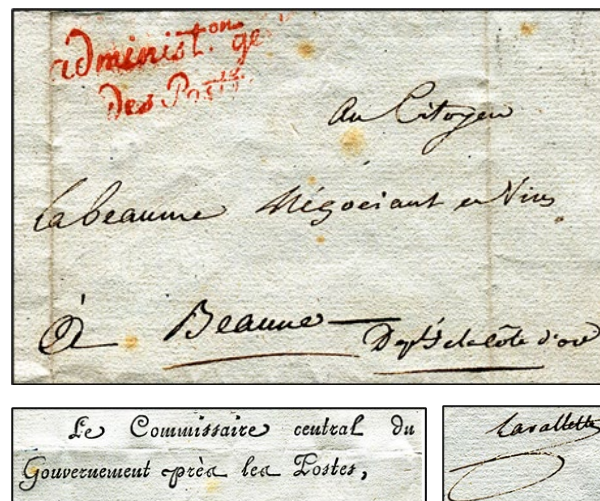 administ.on ge
des Postes
Au Citoyen
Labeaume Négociant en Vins
À Beaune — Dept de la Côte d'or
Le Commissaire central du
Gouvernement près les Postes,
Lavallette